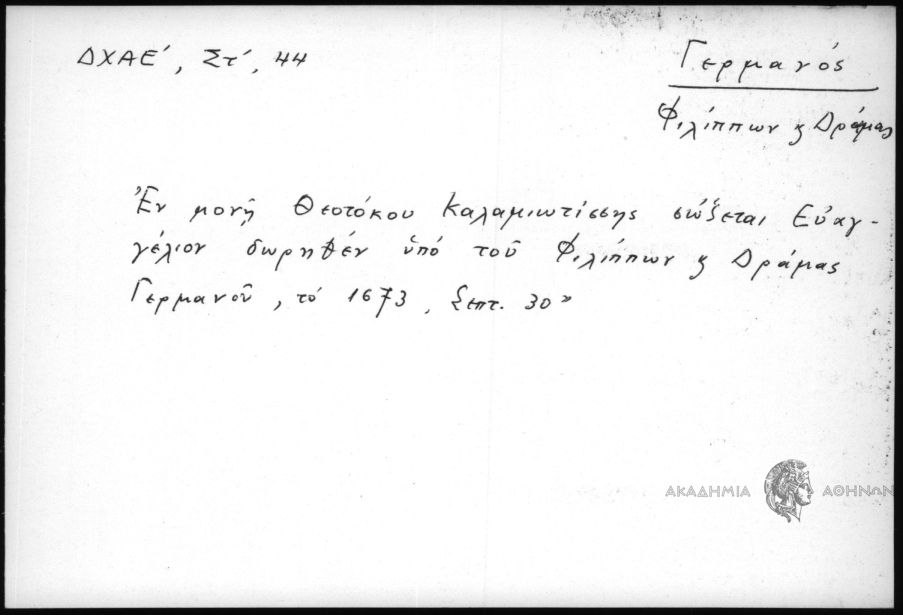 ΔΧΑΕ', Στ', 44
Γερμανός
Φιλίππων ϗ Δράμας
Ἐν μονῇ Θεοτόκου Καλαμιωτίσσης σώζεται Εὐαγ-
γέλιον δωρηθέν ὑπό τοῦ Φιλίππων ϗ Δράμας
Γερμανοῦ, τό 1673, Σεπτ. 30»
ΑΚΑΔΗΜΙΑ ΑΘΗΝΩΝ